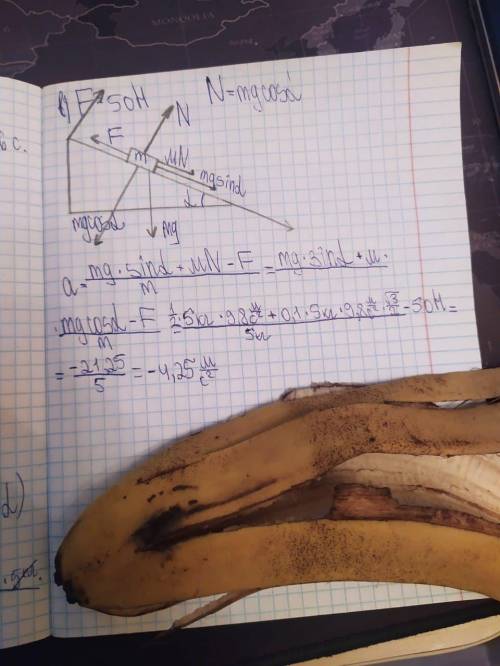 MONGOLIA
в) F = 50Н
N = mgcosα
F
N
m
μN
mgsinα
α
mgcosα
mg
6 с.
a = mg·sinα + μN - F / m = mg·sinα + μ·
·mgcosα - F / m = 1/2·5кг·9,8 м/с² + 0,1·5кг·9,8 м/с²·√3/2 - 50Н / 5кг =
= -21,25 / 5 = -4,25 м/с²
α)